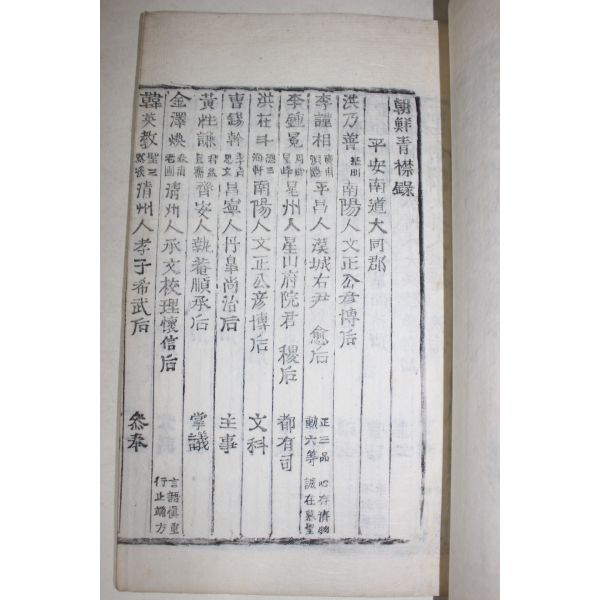 朝鮮青襟錄
平安南道大同郡
洪乃普 南陽人文正公彦博后
李謹相 平昌人漢城右尹 愈后 正三品 勳六等 心存濟物 誠在慕聖
李鍾冕 星峰 星州人星山府院君 稷后 都有司
洪在 海軒 南陽人文正公彦博后 文科
曺錫幹 昌寧人丹皐尚治后 主事
黃性謙 齊安人執菴順承后 掌議
金澤煥 清州人承文校理懷信后 言語愼重 行止端方
韓英敎 聖三 清州人孝子希武后 叅奉